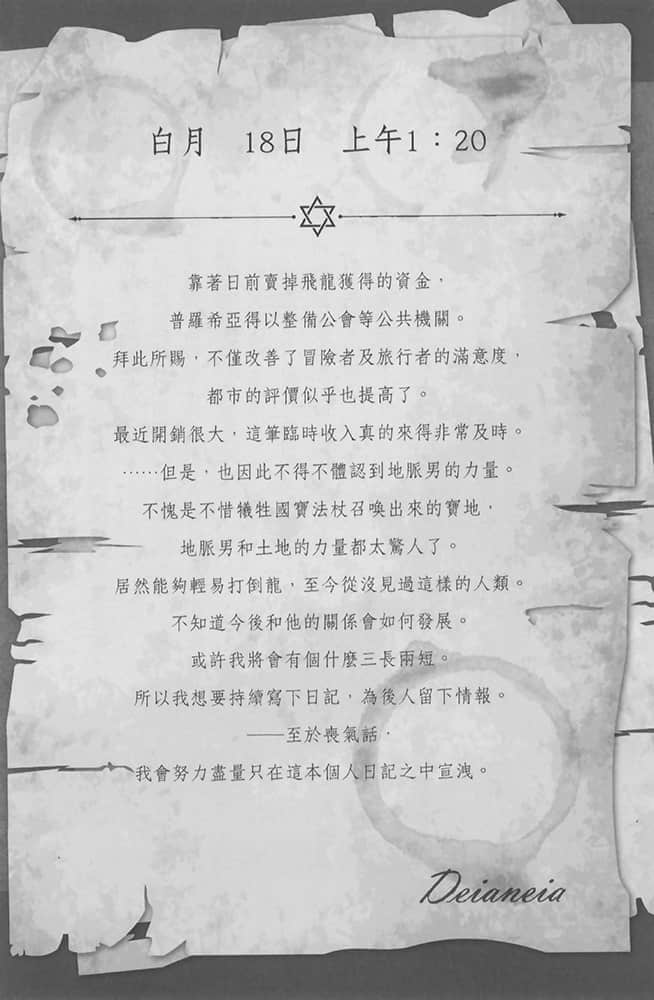 白月　18日　上午1：20
靠著日前賣掉飛龍獲得的資金，
普羅希亞得以整備公會等公共機關。
拜此所賜，不僅改善了冒險者及旅行者的滿意度，
都市的評價似乎也提高了。
最近開銷很大，這筆臨時收入真的來得非常及時。
……但是，也因此不得不體認到地脈男的力量。
不愧是不惜犧牲國寶法杖召喚出來的寶地，
地脈男和土地的力量都太驚人了。
居然能夠輕易打倒龍，至今從沒見過這樣的人類。
不知道今後和他的關係會如何發展。
或許我將會有個什麼三長兩短。
所以我想要持續寫下日記，為後人留下情報。
——至於喪氣話，
我會努力盡量只在這本個人日記之中宣洩。
Deianeia